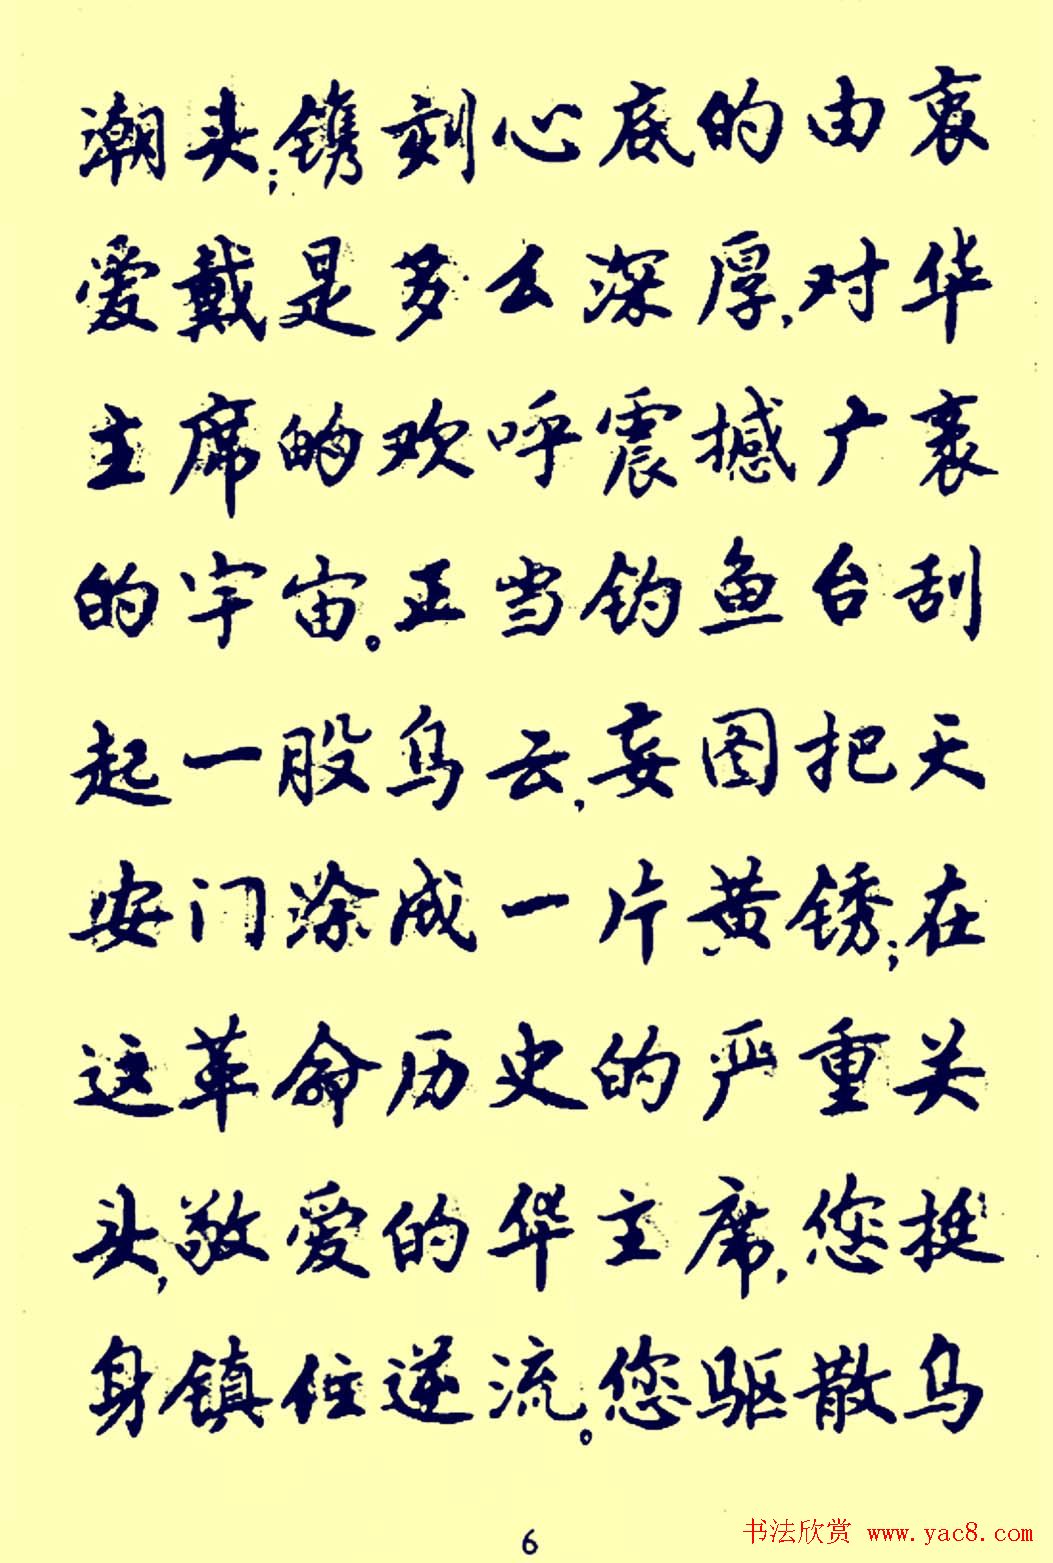 潮头;镌刻心底的由衷
爱戴是多么深厚,对华
主席的欢呼震撼广袤
的宇宙。正当钓鱼台刮
起一股乌云,妄图把天
安门涂成一片黄锈;在
这革命历史的严重关
头,敬爱的华主席,您挺
身镇住逆流。您驱散乌
6
书法欣赏 www.yac8.com